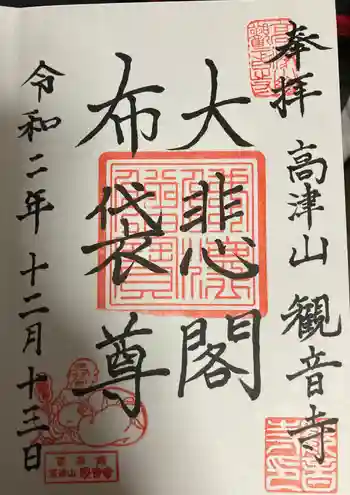 奉拝 高津山 観音寺
大悲閣
布袋尊
令和二年 十二月十三日
高津山 観音寺